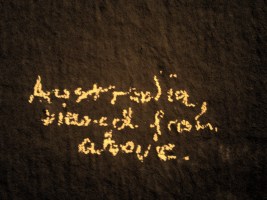 Australia,
viewed from
above.